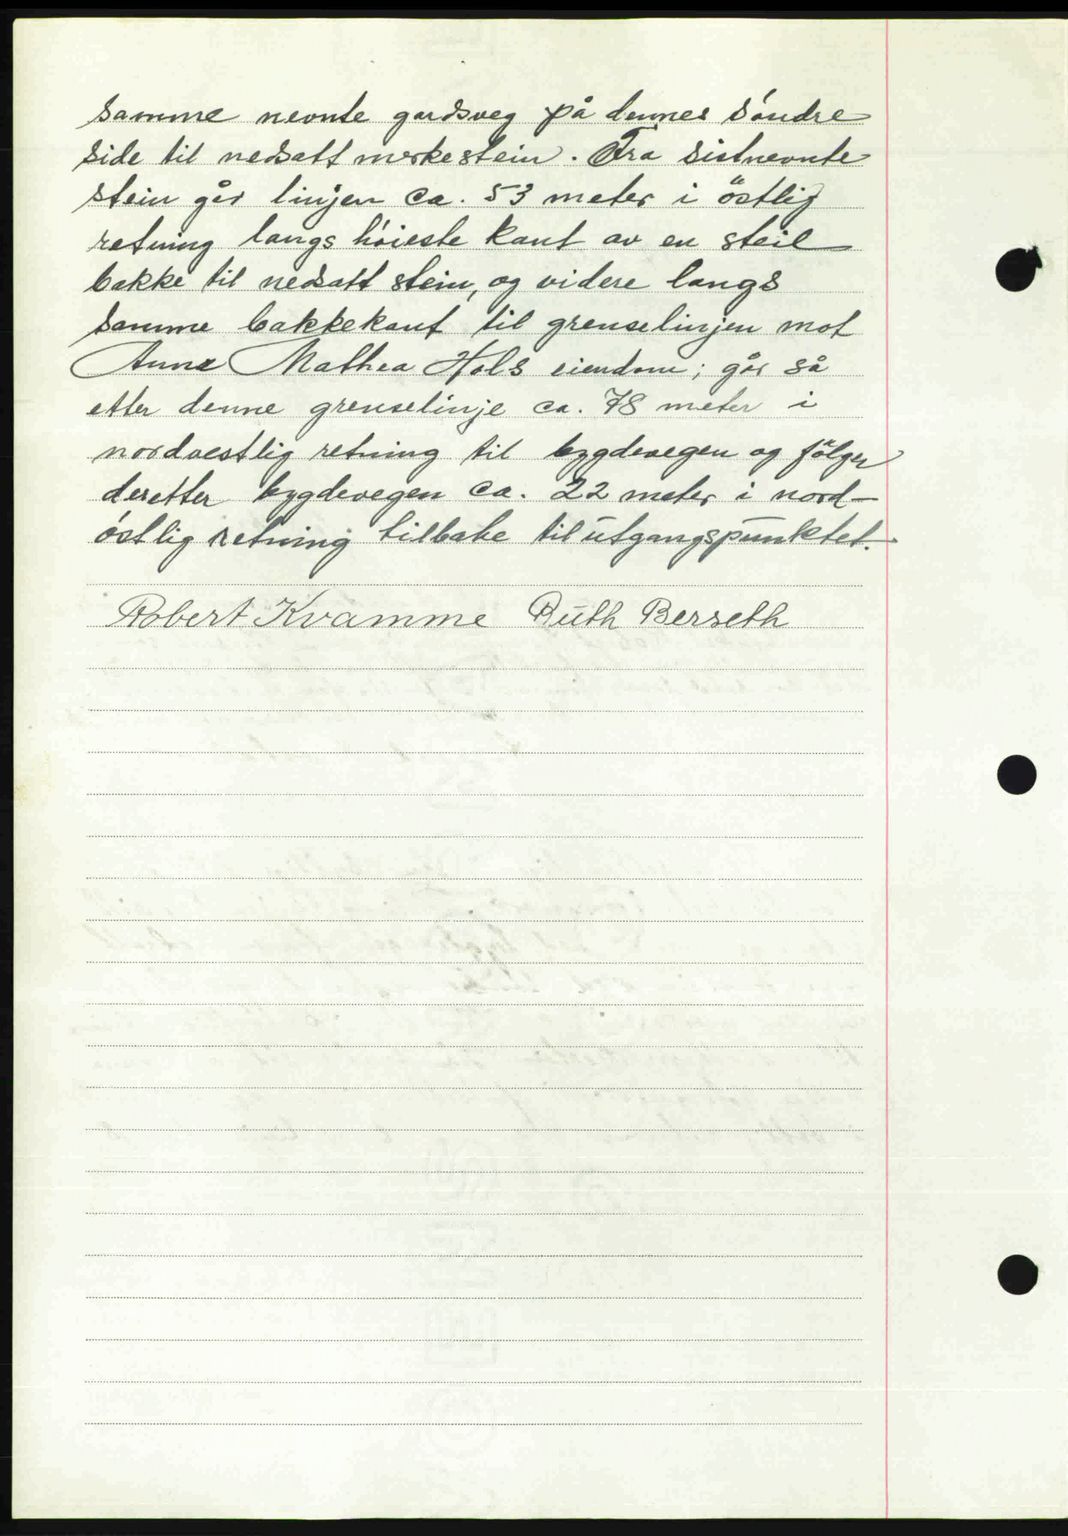 samme nevnte gardsveg på dennes söndre
side til nedsatt merkestein. Fra sistnevnte
stein går linjen ca. 53 meter i östlig
retning langs höieste kant av en steil
bakke til nedsatt stein, og videre langs
samme bakkekant til grenselinjen mot
Anne Mathea Hols eiendom; går så
etter denne grenselinje ca. 78 meter i
nordvestlig retning til bygdevegen og fölger
deretter bygdevegen ca. 22 meter i nord-
östlig retning tilbake til utgangspunktet.
Robert Kvamme Ruth Berseth